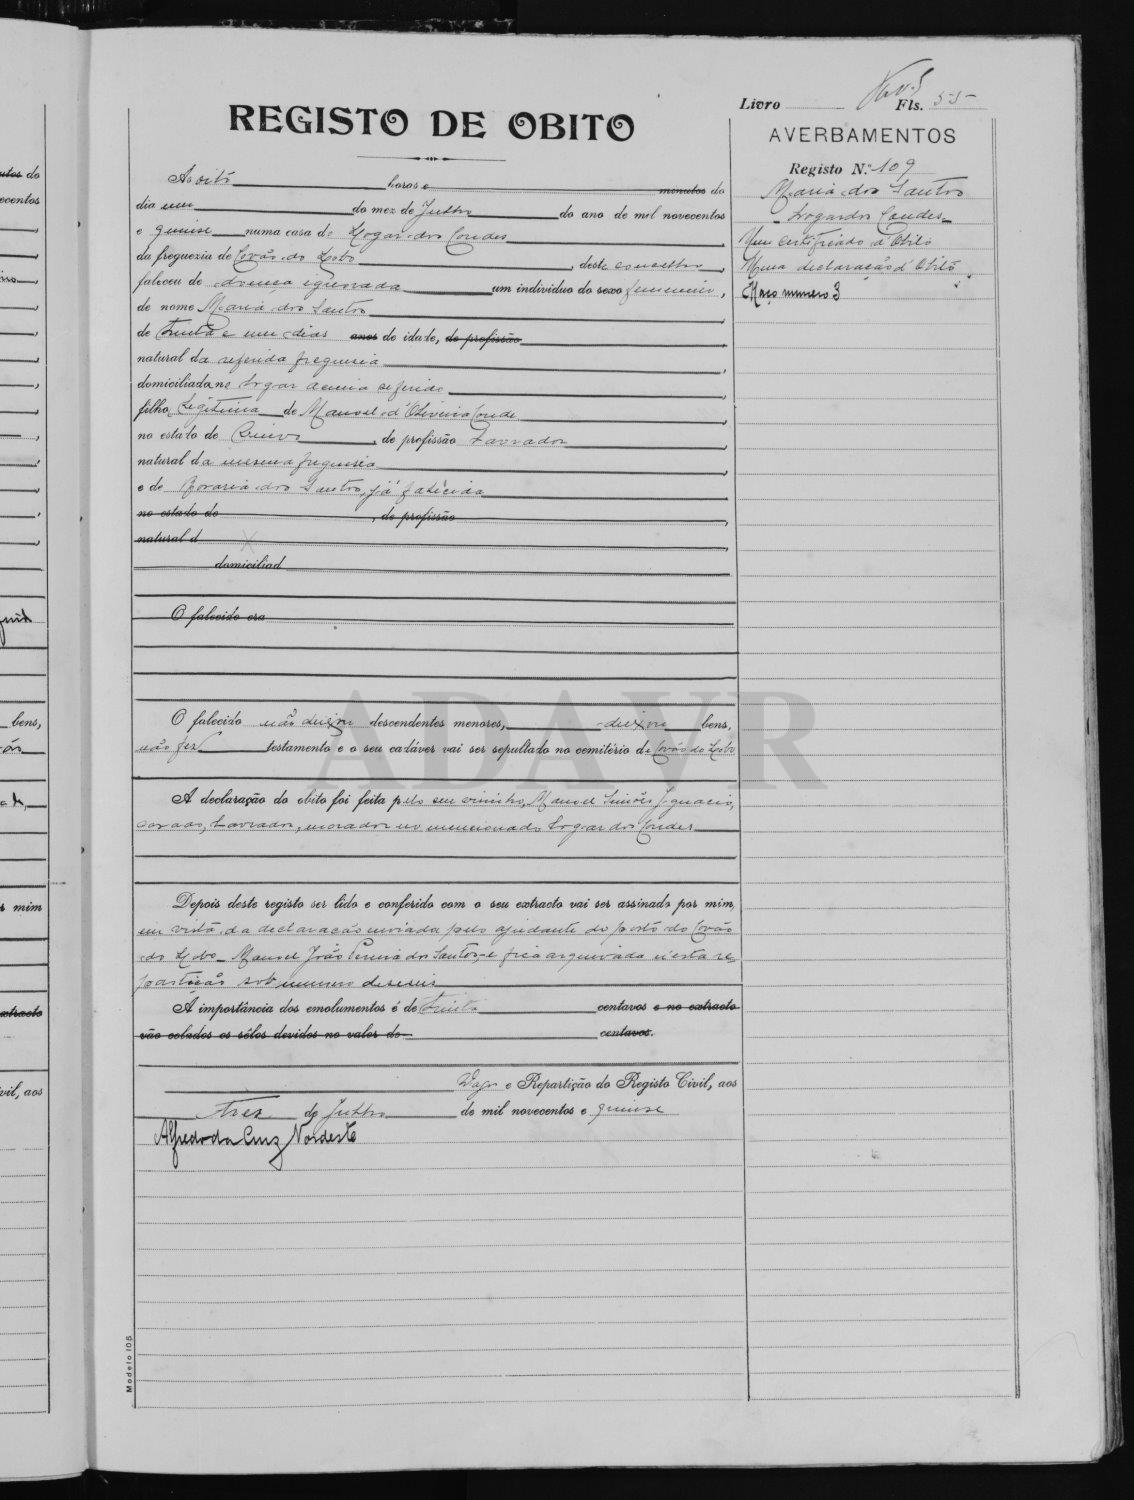 Livro Fls. 55-
REGISTO DE OBITO
AVERBAMENTOS
Registo N.º 109
Maria dos Santos
- Logar dos Condes -
Um certificado d'Obito
Uma declaração d'Obito
Maço numero 3
As oito horas e minutos do
dia um do mez de Julho do ano de mil novecentos
e quinse numa casa do Logar dos Condes
da freguezia de Covão do Lobo, deste concelho,
faleceu de doença ignorada um individuo do sexo femenino,
de nome Maria dos Santos,
de trinta e um dias anos de idade, de profissão
natural da referida freguesia,
domiciliada no Logar acima referido,
filha Legitima de Manoel d'Oliveira Conde,
no estado de Viuvo, de profissão Lavrador,
natural da mesma freguesia
e de Rosaria dos Santos, já falecida
no estado de , de profissão ,
natural d ,
domiciliad
O falecido era
O falecido não deixou descendentes menores, deixou bens,
não fez testamento e o seu cadáver vai ser sepultado no cemitério de Covão do Lobo
A declaração do obito foi feita pelo seu visinho, Manoel Simões Ignacio,
casado, Lavrador, morador no mencionado Logar dos Condes
Depois deste registo ser lido e conferido com o seu extracto vai ser assinado por mim,
em vista da declaração enviada pelo ajudante do posto do Covão
do Lobo - Manoel João Pereira dos Santos, - e fica arquivada n'esta re-
partição sob numero deseseis
A importância dos emolumentos é de trinta centavos e no extracto
vão colados os sêlos devidos no valor de centavos.
Vagos e Repartição do Registo Civil, aos
tres de Julho de mil novecentos e quinse
Alfredo da Cruz Nordeste
ADAVR
Modelo 105